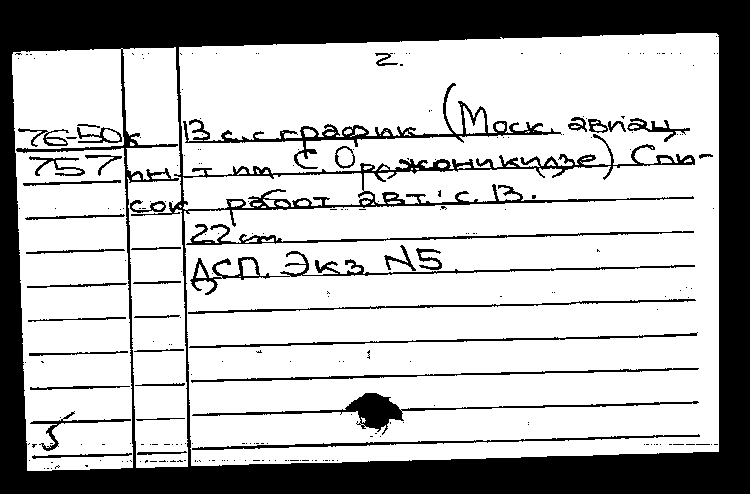 2.
76-50к 13 с. с график. (Моск. авиац
757 ин-т им. С. Орджоникидзе). Спи-
сок работ авт.: с. 13.
22 см.
ДСП. Экз. N5.
5